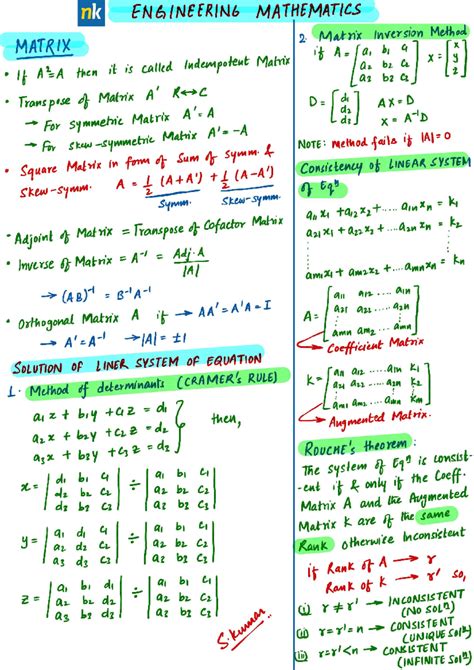 nk ENGINEERING MATHEMATICS
MATRIX
• If A²=A then it is called Indempotent Matrix
• Transpose of Matrix A' R↔C
→ For symmetric Matrix A' = A
→ For skew-symmetric Matrix A' = -A
• Square Matrix in form of Sum of Symm. &
Skew-symm. A = 1/2 (A+A') + 1/2 (A-A')
Symm. Skew-symm.
• Adjoint of Matrix = Transpose of Cofactor Matrix
• Inverse of Matrix = A⁻¹ = Adj.A / |A|
→ (AB)⁻¹ = B⁻¹A⁻¹
• Orthogonal Matrix A if → AA' = A'A = I
→ A' = A⁻¹ → |A| = ±1
SOLUTION OF LINER SYSTEM OF EQUATION
1. Method of determinants (CRAMER'S RULE)
a₁x + b₁y + c₁z = d₁
a₂x + b₂y + c₂z = d₂ } then,
a₃x + b₃y + c₃z = d₃
x = | d₁ b₁ c₁ | ÷ | a₁ b₁ c₁ |
| d₂ b₂ c₂ | | a₂ b₂ c₂ |
| d₃ b₃ c₃ | | a₃ b₃ c₃ |
y = | a₁ d₁ c₁ | ÷ | a₁ b₁ c₁ |
| a₂ d₂ c₂ | | a₂ b₂ c₂ |
| a₃ d₃ c₃ | | a₃ b₃ c₃ |
z = | a₁ b₁ d₁ | ÷ | a₁ b₁ c₁ |
| a₂ b₂ d₂ | | a₂ b₂ c₂ |
| a₃ b₃ d₃ | | a₃ b₃ c₃ |
S.Kumar
2. Matrix Inversion Method
if A = [ a₁ b₁ c₁ ] X = [ x ]
[ a₂ b₂ c₂ ] [ y ]
[ a₃ b₃ c₃ ] [ z ]
D = [ d₁ ] AX = D
[ d₂ ] X = A⁻¹D
[ d₃ ]
NOTE: method fails if |A| = 0
Consistency of LINEAR SYSTEM
of Eqⁿ
a₁₁x₁ + a₁₂x₂ + .... a₁ₙxₙ = k₁
a₂₁x₁ + a₂₂x₂ + .... a₂ₙxₙ = k₂
aₘ₁x₁ + aₘ₂x₂ + .... aₘₙxₙ = kₙ
A = [ a₁₁ a₁₂ .... a₁ₙ ]
[ a₂₁ a₂₂ .... a₂ₙ ]
[ aₘₙ aₘ₂ .... aₘₙ ]
→ Coefficient Matrix
K = [ a₁₁ a₁₂ ..... a₁ₙ k₁ ]
[ a₂₁ a₂₂ .... a₂ₙ k₂ ]
[ aₘ₁ aₘ₂ .... aₘₙ kₙ ]
→ Augmented Matrix.
ROUCHE'S theorem:
The system of Eqⁿ is consist-
-ent if & only if the Coeff.
Matrix A and the Augmented
Matrix K are of the same
Rank otherwise Inconsistent
if Rank of A → r
Rank of K → r' so,
(i) r ≠ r' → INCONSISTENT
(NO SOLⁿ)
(ii) r = r' = n → CONSISTENT
(UNIQUE SOLⁿ)
(iii) r = r' < n → CONSISTENT
(INFINITE SOLⁿ)